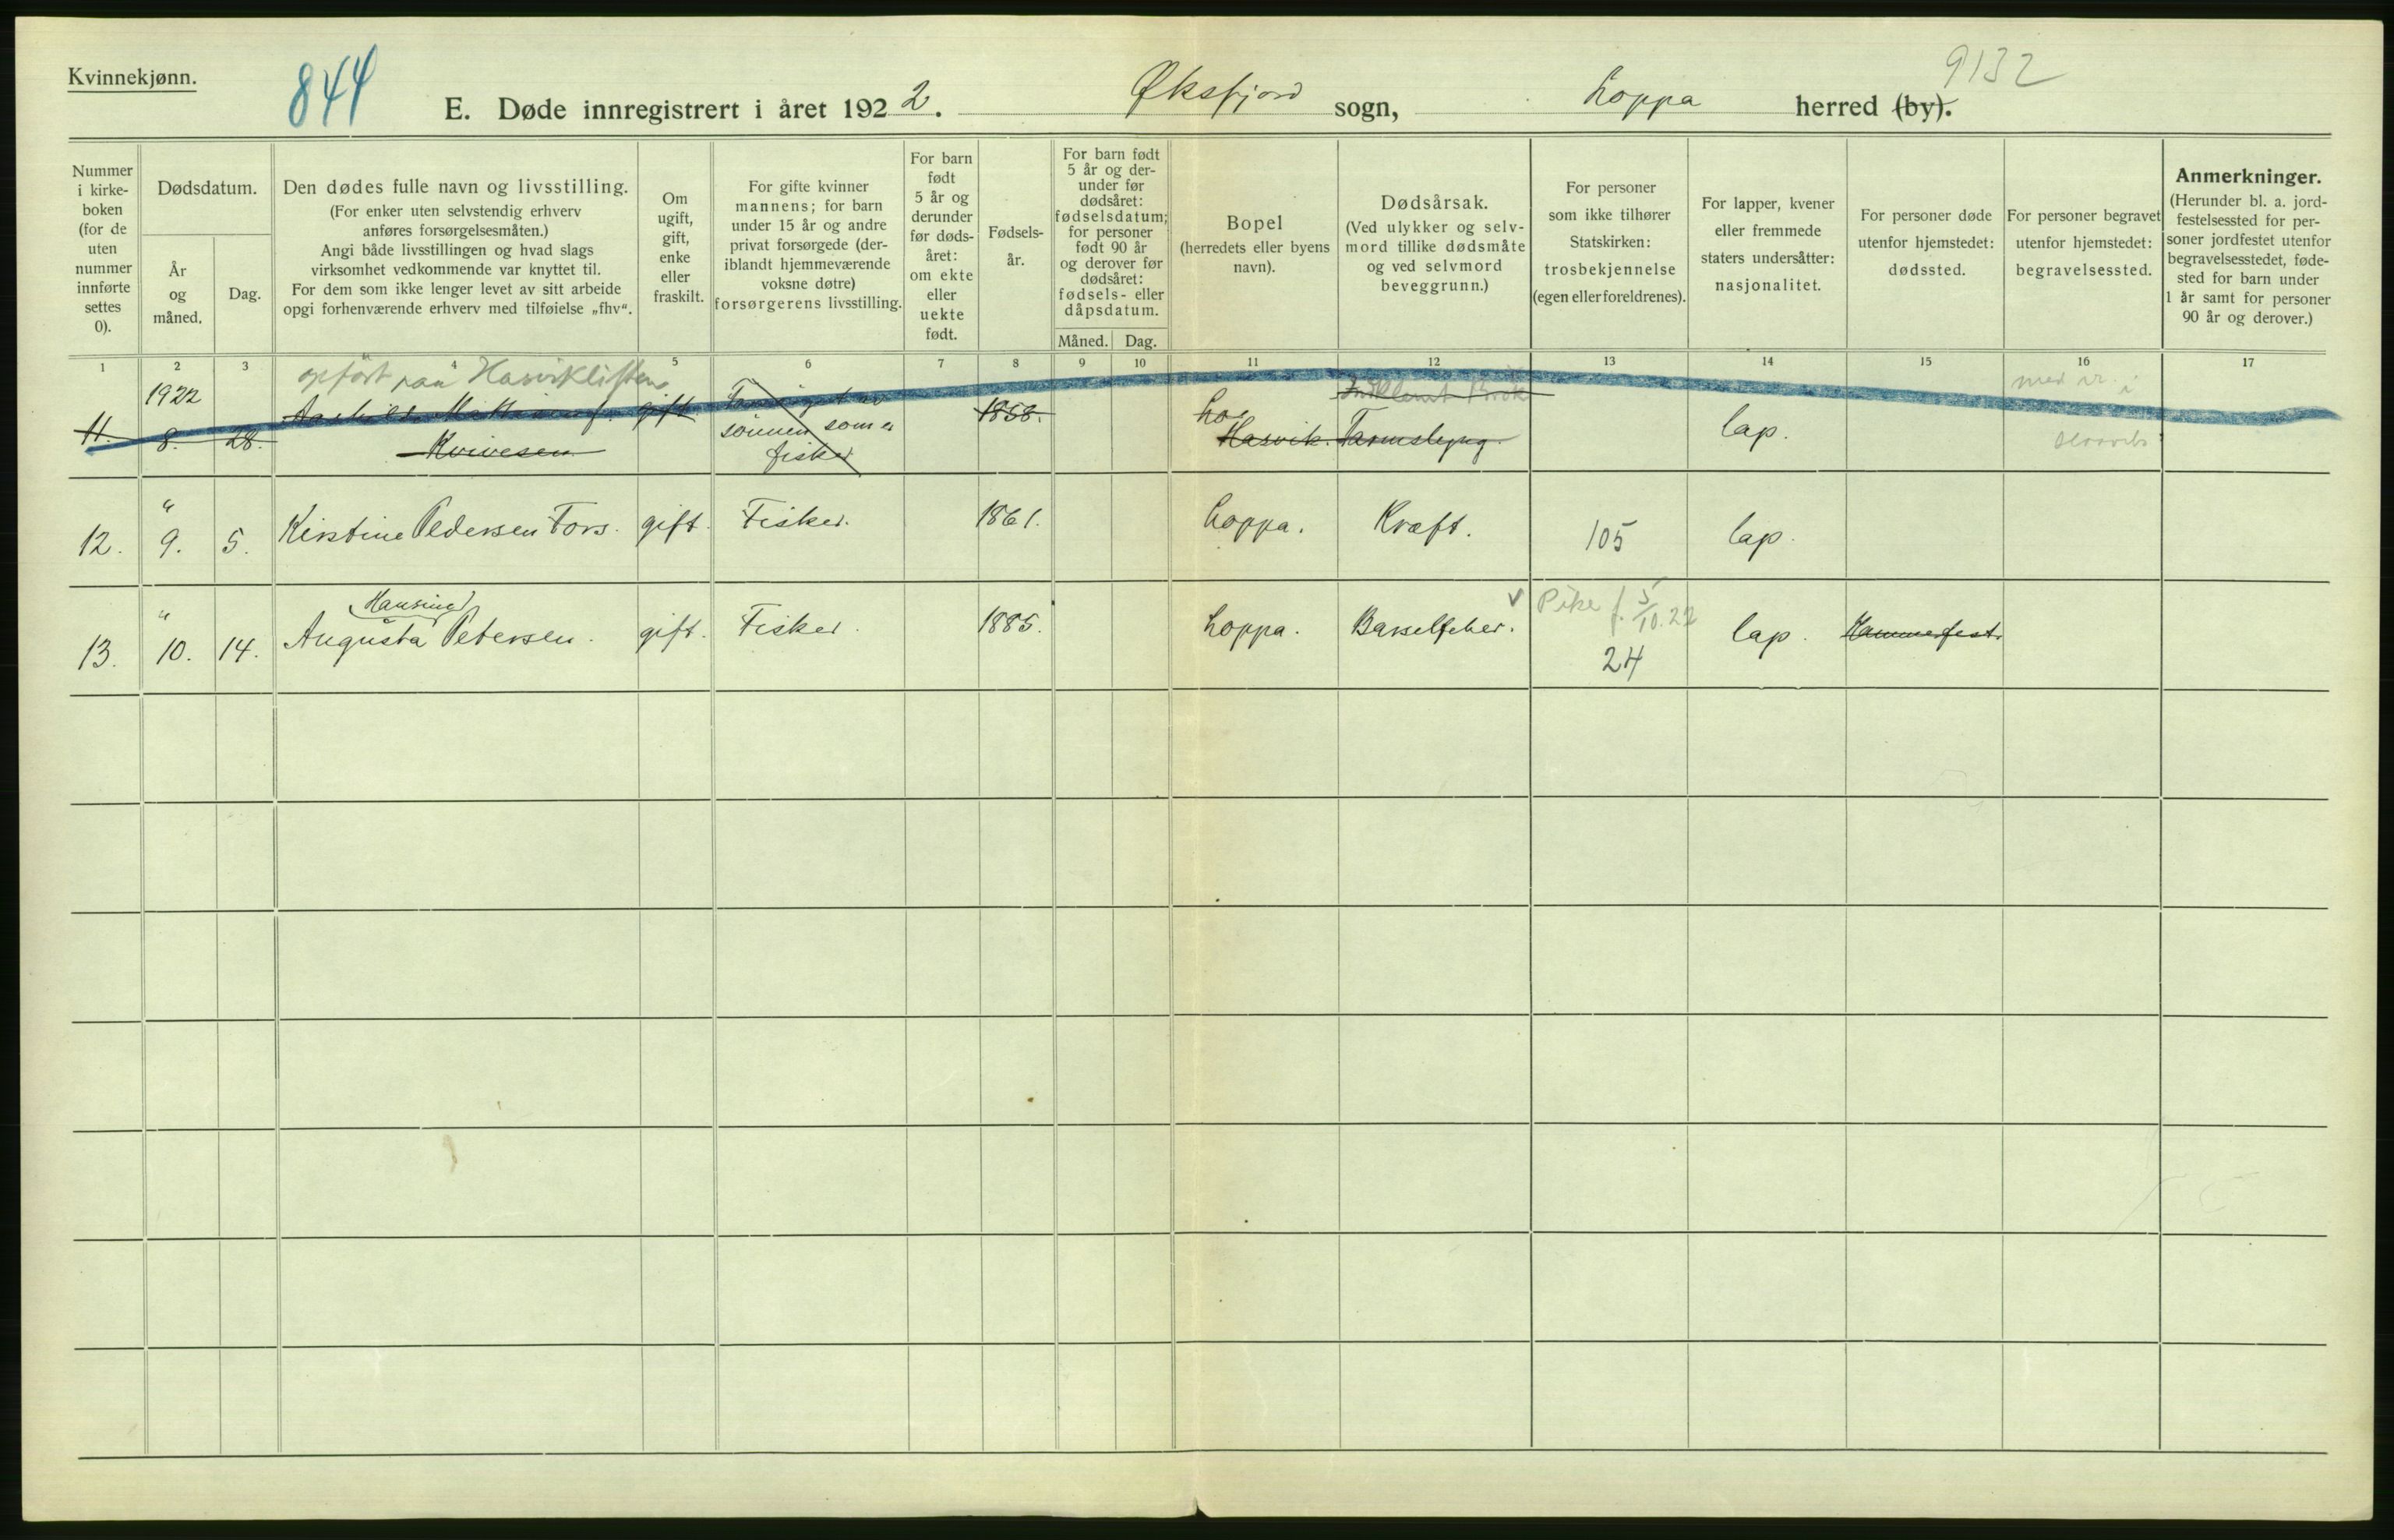 Kvinnekjønn.
844
9132
E. Døde innregistrert i året 1922. Øksfjord sogn, Loppa herred (by).
Nummer i kirkeboken (for de uten nummer innførte settes 0).
Dødsdatum.
År og måned.
Dag.
Den dødes fulle navn og livsstilling.
(For enker uten selvstendig erhverv anføres forsørgelsesmåten.)
Angi både livsstillingen og hvad slags virksomhet vedkommende var knyttet til.
For dem som ikke lenger levet av sitt arbeide opgi forhenværende erhverv med tilføielse „fhv“.
Om ugift, gift, enke eller fraskilt.
For gifte kvinner mannens; for barn under 15 år og andre privat forsørgede (deriblandt hjemmeværende voksne døtre) forsørgerens livsstilling.
For barn født 5 år og derunder før dødsåret: om ekte eller uekte født.
Fødselsår.
For barn født 5 år og derunder før dødsåret: fødselsdatum; for personer født 90 år og derover før dødsåret: fødsels- eller dåpsdatum.
Måned.
Dag.
Bopel
(herredets eller byens navn).
Dødsårsak.
(Ved ulykker og selvmord tillike dødsmåte og ved selvmord beveggrunn.)
For personer som ikke tilhører Statskirken: trosbekjennelse (egen eller foreldrenes).
For lapper, kvener eller fremmede staters undersåtter: nasjonalitet.
For personer døde utenfor hjemstedet: dødssted.
For personer begravet utenfor hjemstedet: begravelsessted.
Anmerkninger.
(Herunder bl. a. jordfestelsessted for personer jordfestet utenfor begravelsesstedet, fødested for barn under 1 år samt for personer 90 år og derover.)
1 2 3 4 5 6 7 8 9 10 11 12 13 14 15 16 17
opført paa Hasviklisten
11. 1922 8. 28. gift. sønnen som er fisker 1858. Hasvik. Tarmslyng. lap.
12. " 9. 5. Kirstine Pedersen Fors. gift. Fisker. 1861. Loppa. Kræft. 105 lap.
Pike f. 5/10.22
13. " 10. 14. Augusta (Hansine) Petersen. gift. Fisker. 1885. Loppa. Barselfeber. 24 lap. Hammerfest.